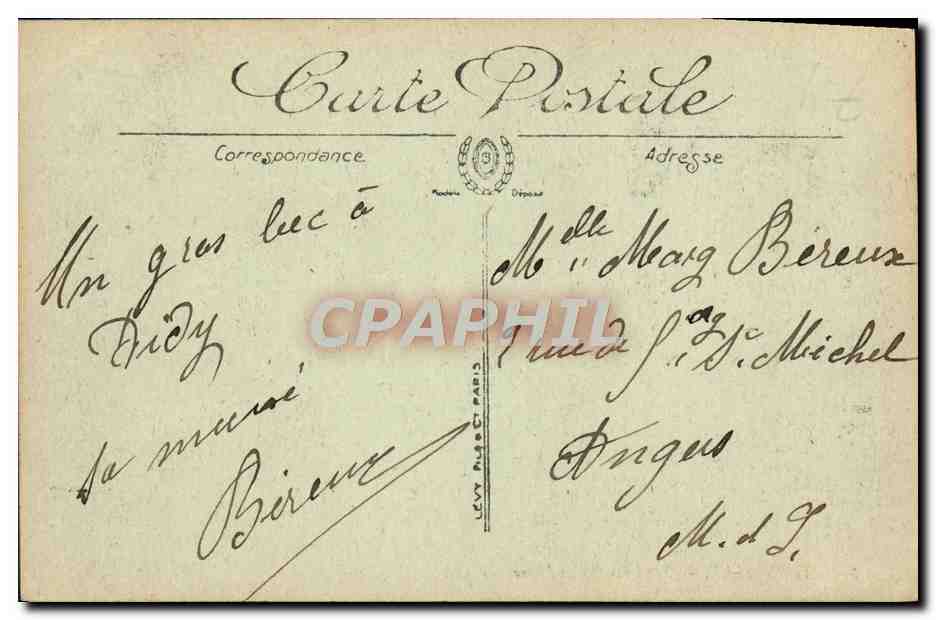 Carte Postale
Correspondance
Adresse
Modèle Déposé
Un gros bec à
Didy
sa mémé
Béreux
Melle Marg Béreux
7 rue de St Michel
Angers
M. d L.
LÉVY FILS ET Cie PARIS
CPAPHIL